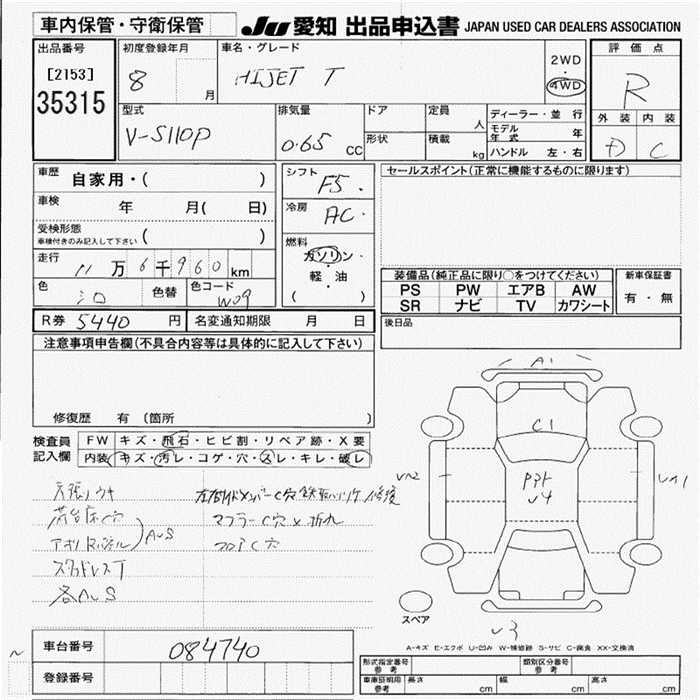 車内保管・守衛保管
JU 愛知 出品申込書 JAPAN USED CAR DEALERS ASSOCIATION
出品番号
[2153]
35315
初度登録年月
8 月
車名・グレード
HIJET T
2WD
・
4WD
評価点
R
外装 内装
D C
型式
V-S110P
排気量
0.65 CC
ドア
形状
定員 人
積載 kg
ディーラー・並行
モデル年式 年
ハンドル 左・右
車歴 自家用・( )
車検 年 月( 日)
受検形態
車検付きのみ記入して下さい ( )
走行 11万6千960km
色 シロ 色替 色コード W09
シフト F5
冷房 AC
燃料 ガソリン・
軽・油
( )
セールスポイント(正常に機能するものに限ります)
装備品(純正品に限り○をつけてください)
PS PW エアB AW
SR ナビ TV カワシート
新車保証書
有・無
R券 5440 円 名変通知期限 月 日
後日品
注意事項申告欄(不具合内容等は具体的に記入して下さい)
修復歴 有 (箇所 )
検査員
記入欄
FW キズ・飛石・ヒビ割・リペア跡・X要
内装 キズ・汚レ・コゲ・穴・スレ・キレ・破レ
荷台床C穴
マフラーC穴X折れ
AUS
フロアC穴
スタッドレスT
各AUS
A1
C1
U2
U4
UA1
U3
スペア
A-キズ E-エクボ U-凹み W-補修跡 S-サビ C-腐食 XX-交換済
車台番号 084740
登録番号
型式指定番号 参考
類別区分番号 参考
車庫証明用 参考 長さ cm 幅 cm 高さ cm